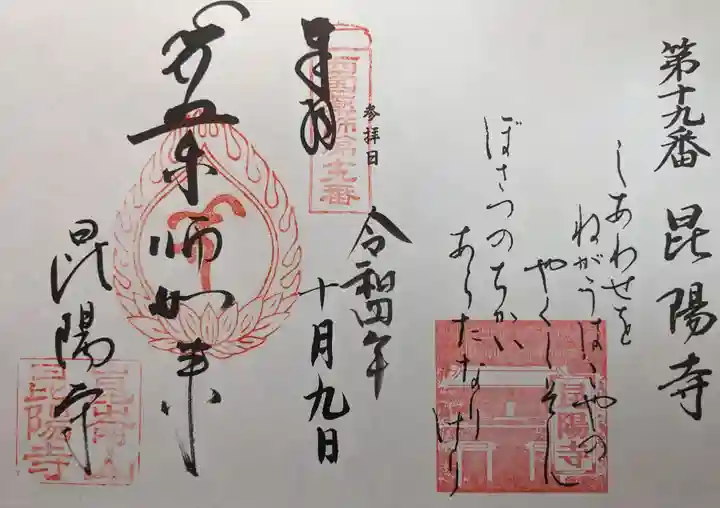 第十九番 昆陽寺
しあわせを
ねがうはこやの
やくしそん
ぼさつのちかい
あらたなりけり
参拝日
令和四年
十月九日
奉拝
西国薬師第十九番
薬師如来
昆陽寺
崑崙山
昆陽寺
昆陽寺